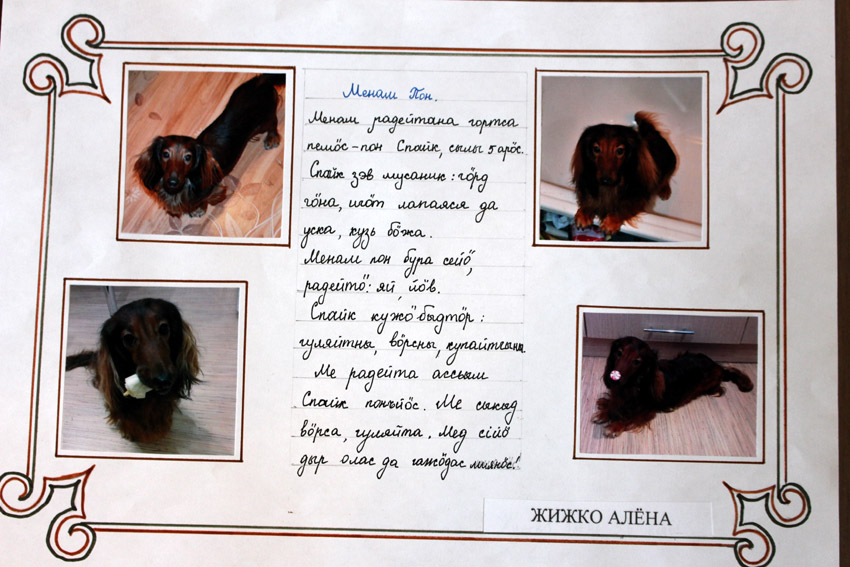 Менам Пон.
Менам радейтана гортса
пемӧс-пон Спайк, сылы 5 арӧс.
Спайк зэв мусаник: гӧрд
гӧна, ичӧт лапаяса да
уска, кузь бӧжа.
Менам пон бура сейӧ,
радейтӧ: яй, йӧв.
Спайк кужӧ быдтӧр:
гуляйтны, вӧрсны, купайтчыны.
Ме радейта ассьым
Спайк понйӧс. Ме сыкӧд
вӧрса, гуляйта. Мед сійӧ
дыр олас да гажӧдас миянӧс!
ЖИЖКО АЛЁНА